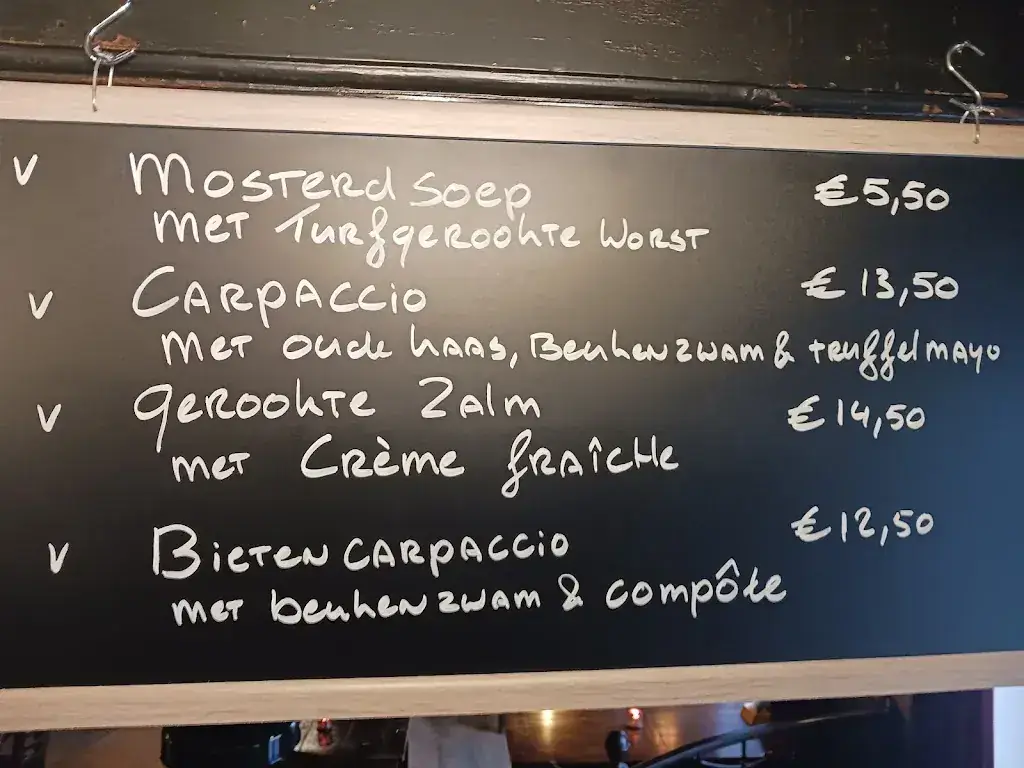 v Mosterd soep €5,50
met Turfgerookte worst
v Carpaccio €13,50
met oude kaas, Beukenzwam & truffelmayo
v gerookte Zalm €14,50
met Crème fraîche
v Bieten carpaccio €12,50
met beukenzwam & compôte